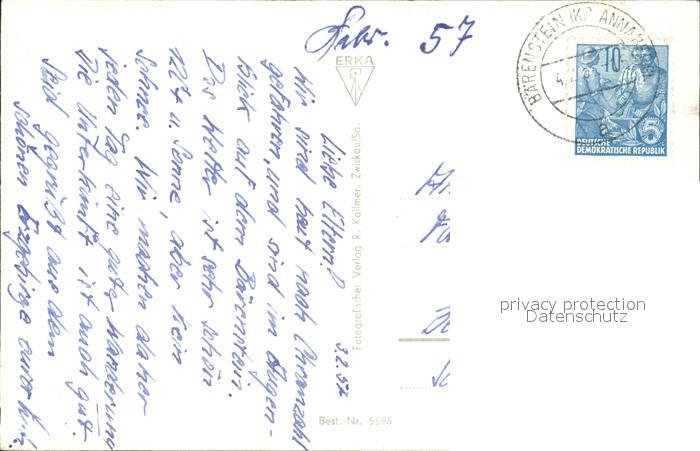 Febr. 57
ERKA
Liebe Eltern! 3.2.57
Wir sind heut nach Cranzahl
gefahren, und sind im Augen-
blick auf dem Bärenstein.
Das Wetter ist sehr schön
mit u. Sonne, aber kein
Schnee. Wir machen daher
jeden Tag eine gute Wanderung
Die Unterkunft ist auch gut.
Seid gegrüßt aus dem
schönen Erzgebirge euer
Fotografischer Verlag R. Kallmer, Zwickau/Sa.
Best.-Nr. 5596
BÄRENSTEIN (KR ANNABERG
10
5
DEUTSCHE
DEMOKRATISCHE REPUBLIK
privacy protection
Datenschutz